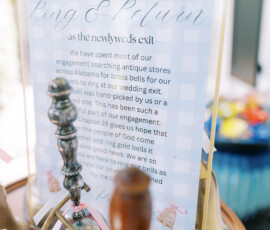 Ring & Return
as the newlyweds exit
We have spent most of our
engagement searching antique stores
across Alabama for brass bells for our
guests to ring at our wedding exit.
bell was hand-picked by us or a
ed one. This has been such a
part of our engagement.
28 gives us hope that
the people of God come
and ring bells it
good news. We are so
are here to ring our bells as